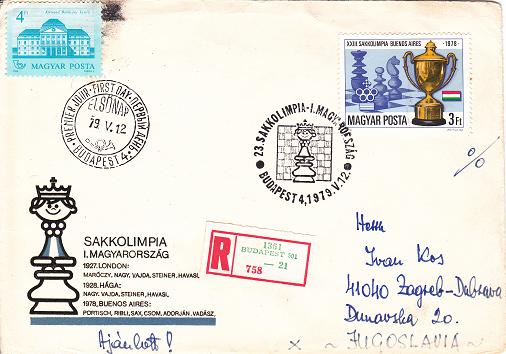 4 Ft
MAGYAR POSTA
XXIII. SAKKOLIMPIA BUENOS AIRES - 1978 -
MAGYAR POSTA 3 Ft
PREMIER JOUR · FIRST DAY · ПЕРВЫЙ ДЕНЬ
ELSŐNAP
79 V. 12
BUDAPEST 4.
23. SAKKOLIMPIA - I. MAGYARORSZÁG
BUDAPEST 4, 1979. V. 12.
%
SAKKOLIMPIA
I. MAGYARORSZÁG
1927. LONDON:
MARÓCZY, NAGY, VAJDA, STEINER, HAVASI.
1928. HÁGA:
NAGY, VAJDA, STEINER, HAVASI.
1978. BUENOS AIRES:
PORTISCH, RIBLI, SAX, CSOM, ADORJÁN, VADÁSZ.
Ajánlott!
R
1351
BUDAPEST 501
— 21
758
Ivan Kos
41040 Zagreb-Dubrava
Dunavska 20.
x ~ JUGOSLAVIA ~